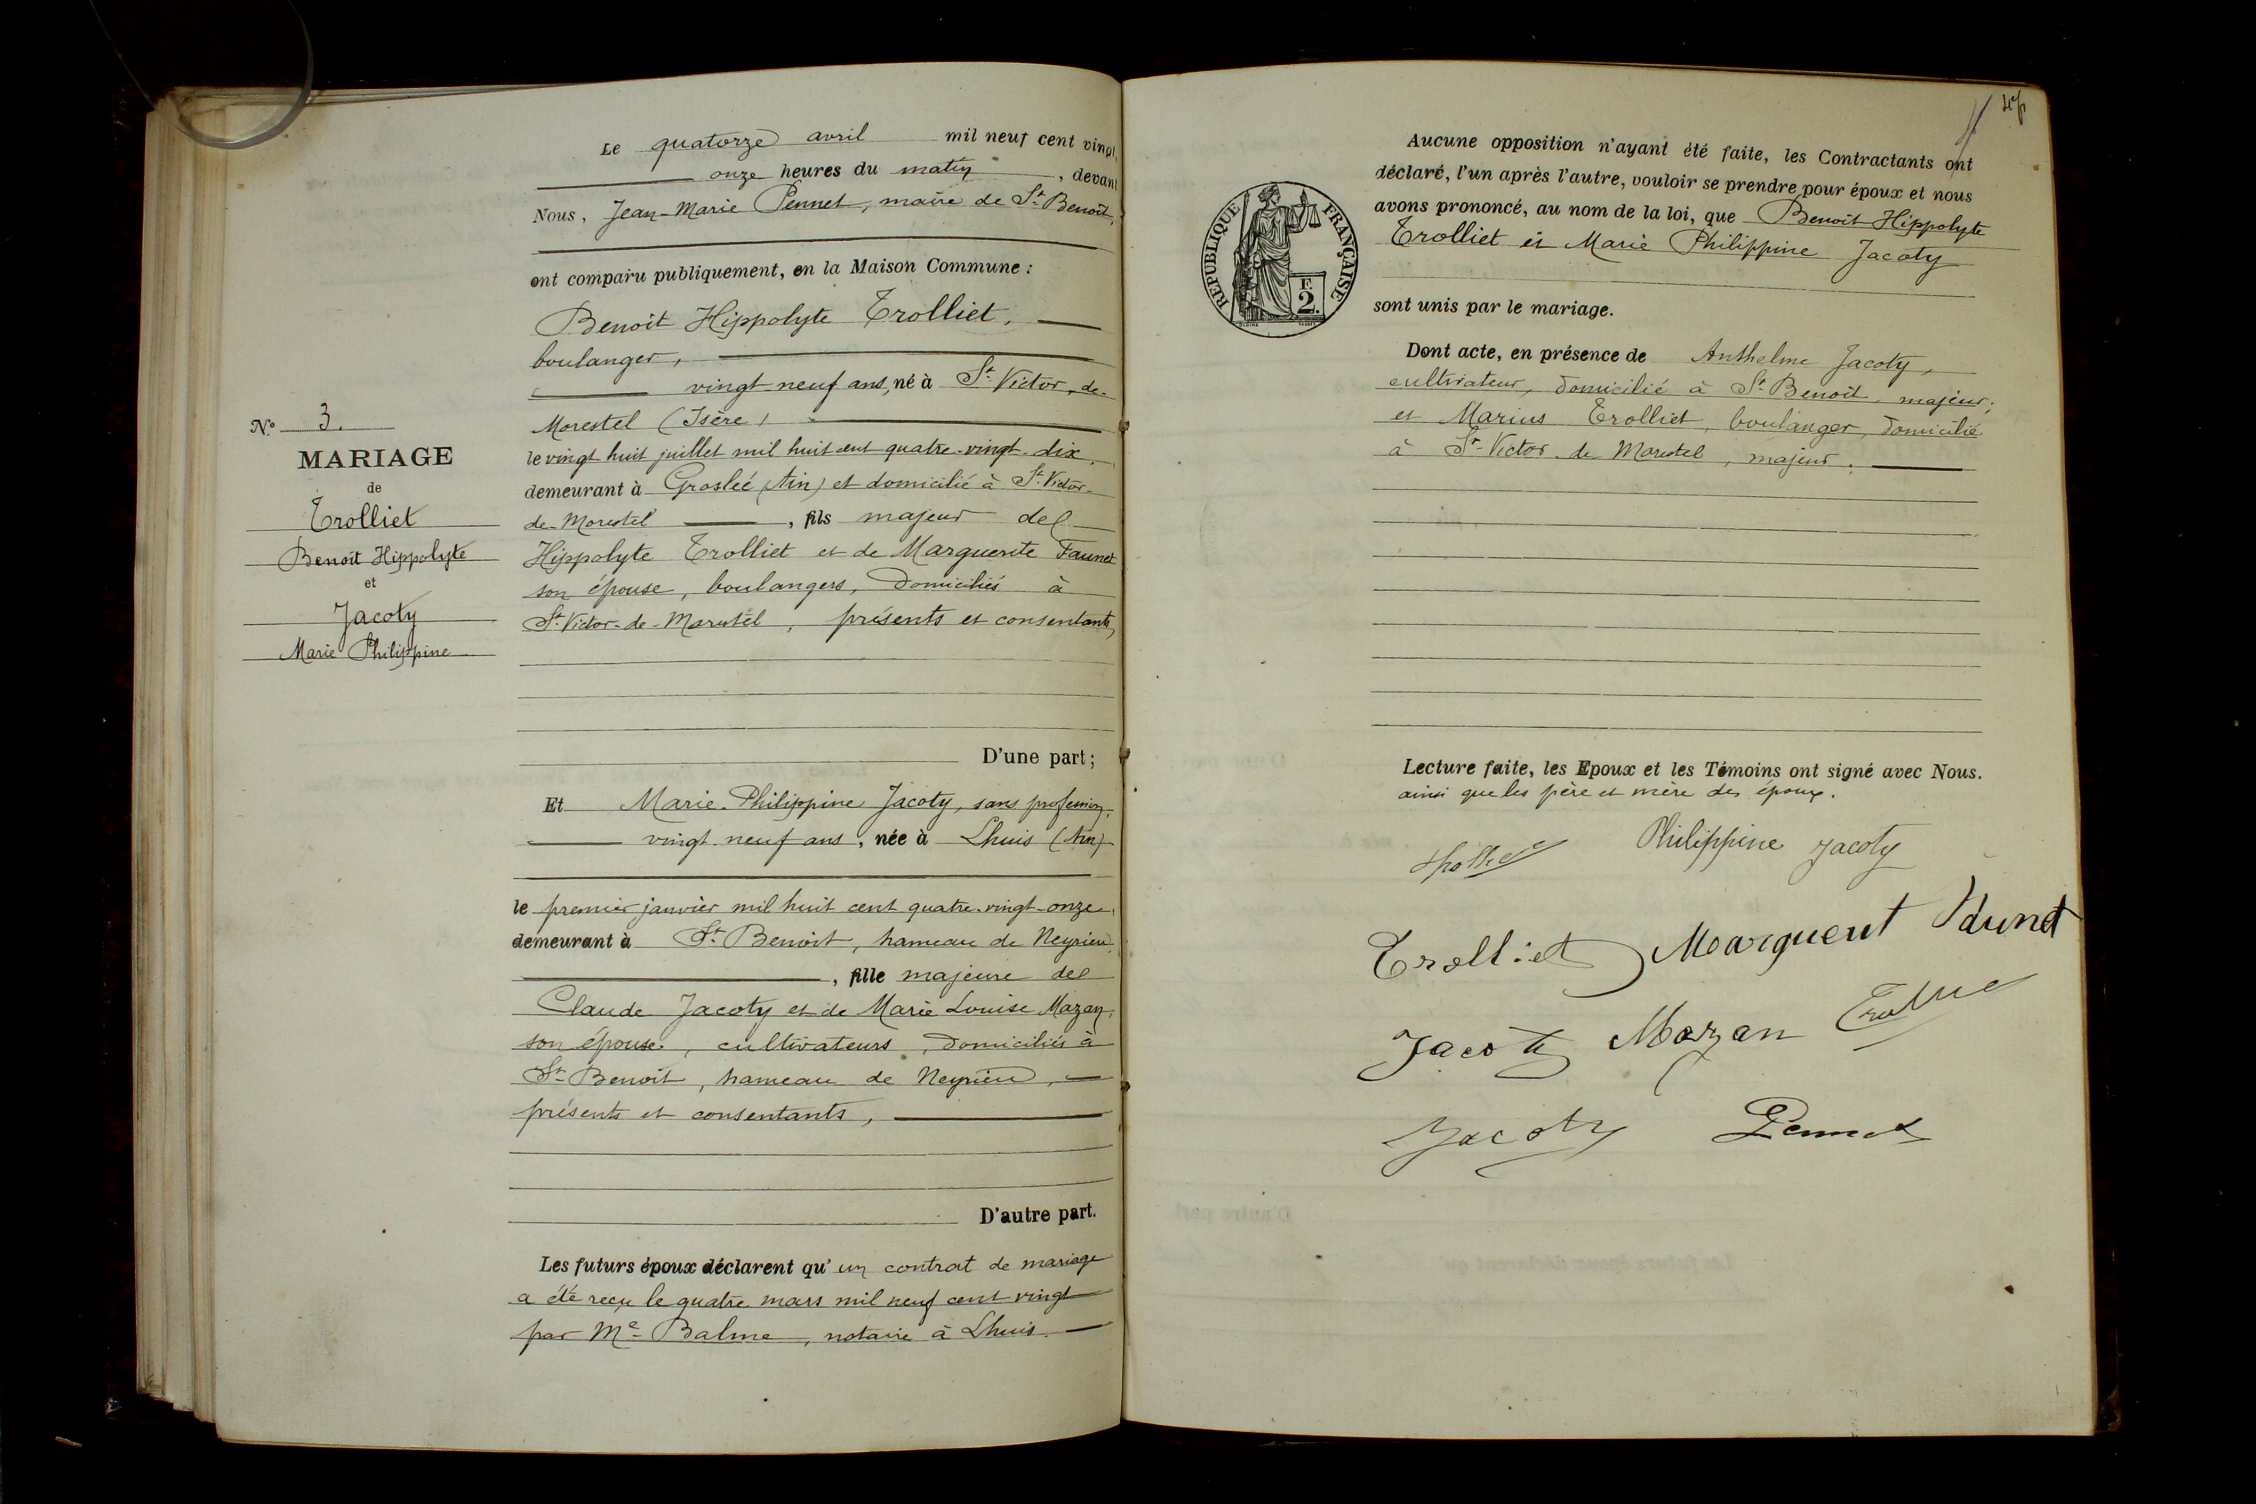 Le quatorze avril mil neuf cent vingt,
onze heures du matin, devant
Nous, Jean-Marie Pennet, maire de St. Benoît,
ont comparu publiquement, en la Maison Commune :
Benoit Hippolyte Trolliet,
boulanger,
vingt-neuf ans, né à St. Victor-de-
Morestel (Isère)
No. 3.
MARIAGE
de
Trolliet
Benoit Hippolyte
et
Jacoty
Marie Philippine
le vingt huit juillet mil huit cent quatre-vingt-dix,
demeurant à Groslée (Ain) et domicilié à St. Victor-
de-Morestel, fils majeur de
Hippolyte Trolliet et de Marguerite Faunet
son épouse, boulangers, domiciliés à
St. Victor-de-Morestel, présents et consentants,
D'une part ;
Et Marie-Philippine Jacoty, sans profession,
vingt-neuf ans, née à Lhuis (Ain)
le premier janvier mil huit cent quatre-vingt-onze,
demeurant à St. Benoît, hameau de Neyrieu,
, fille majeure de
Claude Jacoty et de Marie Louise Mazan,
son épouse, cultivateurs, domiciliés à
St. Benoît, hameau de Neyrieu,
présents et consentants,
D'autre part.
Les futurs époux déclarent qu'un contrat de mariage
a été reçu le quatre mars mil neuf cent vingt
par Me Balme, notaire à Lhuis.
Aucune opposition n'ayant été faite, les Contractants ont
déclaré, l'un après l'autre, vouloir se prendre pour époux et nous
avons prononcé, au nom de la loi, que Benoit Hippolyte
Trolliet et Marie Philippine Jacoty
RÉPUBLIQUE FRANÇAISE
F.
2
sont unis par le mariage.
Dont acte, en présence de Anthelme Jacoty,
cultivateur, domicilié à St. Benoît, majeur;
et Marius Trolliet, boulanger, domicilié
à St. Victor-de-Morestel, majeur.
Lecture faite, les Epoux et les Témoins ont signé avec Nous.
ainsi que les père et mère des époux.
Philippine Jacoty
Trolliet Marguerit
Jacoty Mazan
Jacoty Pennet